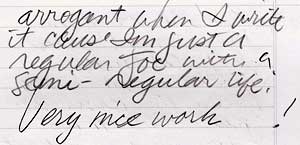 arrogant when I write
it cause Im just a
regular Joe with a
semi-regular life.
Very nice work !